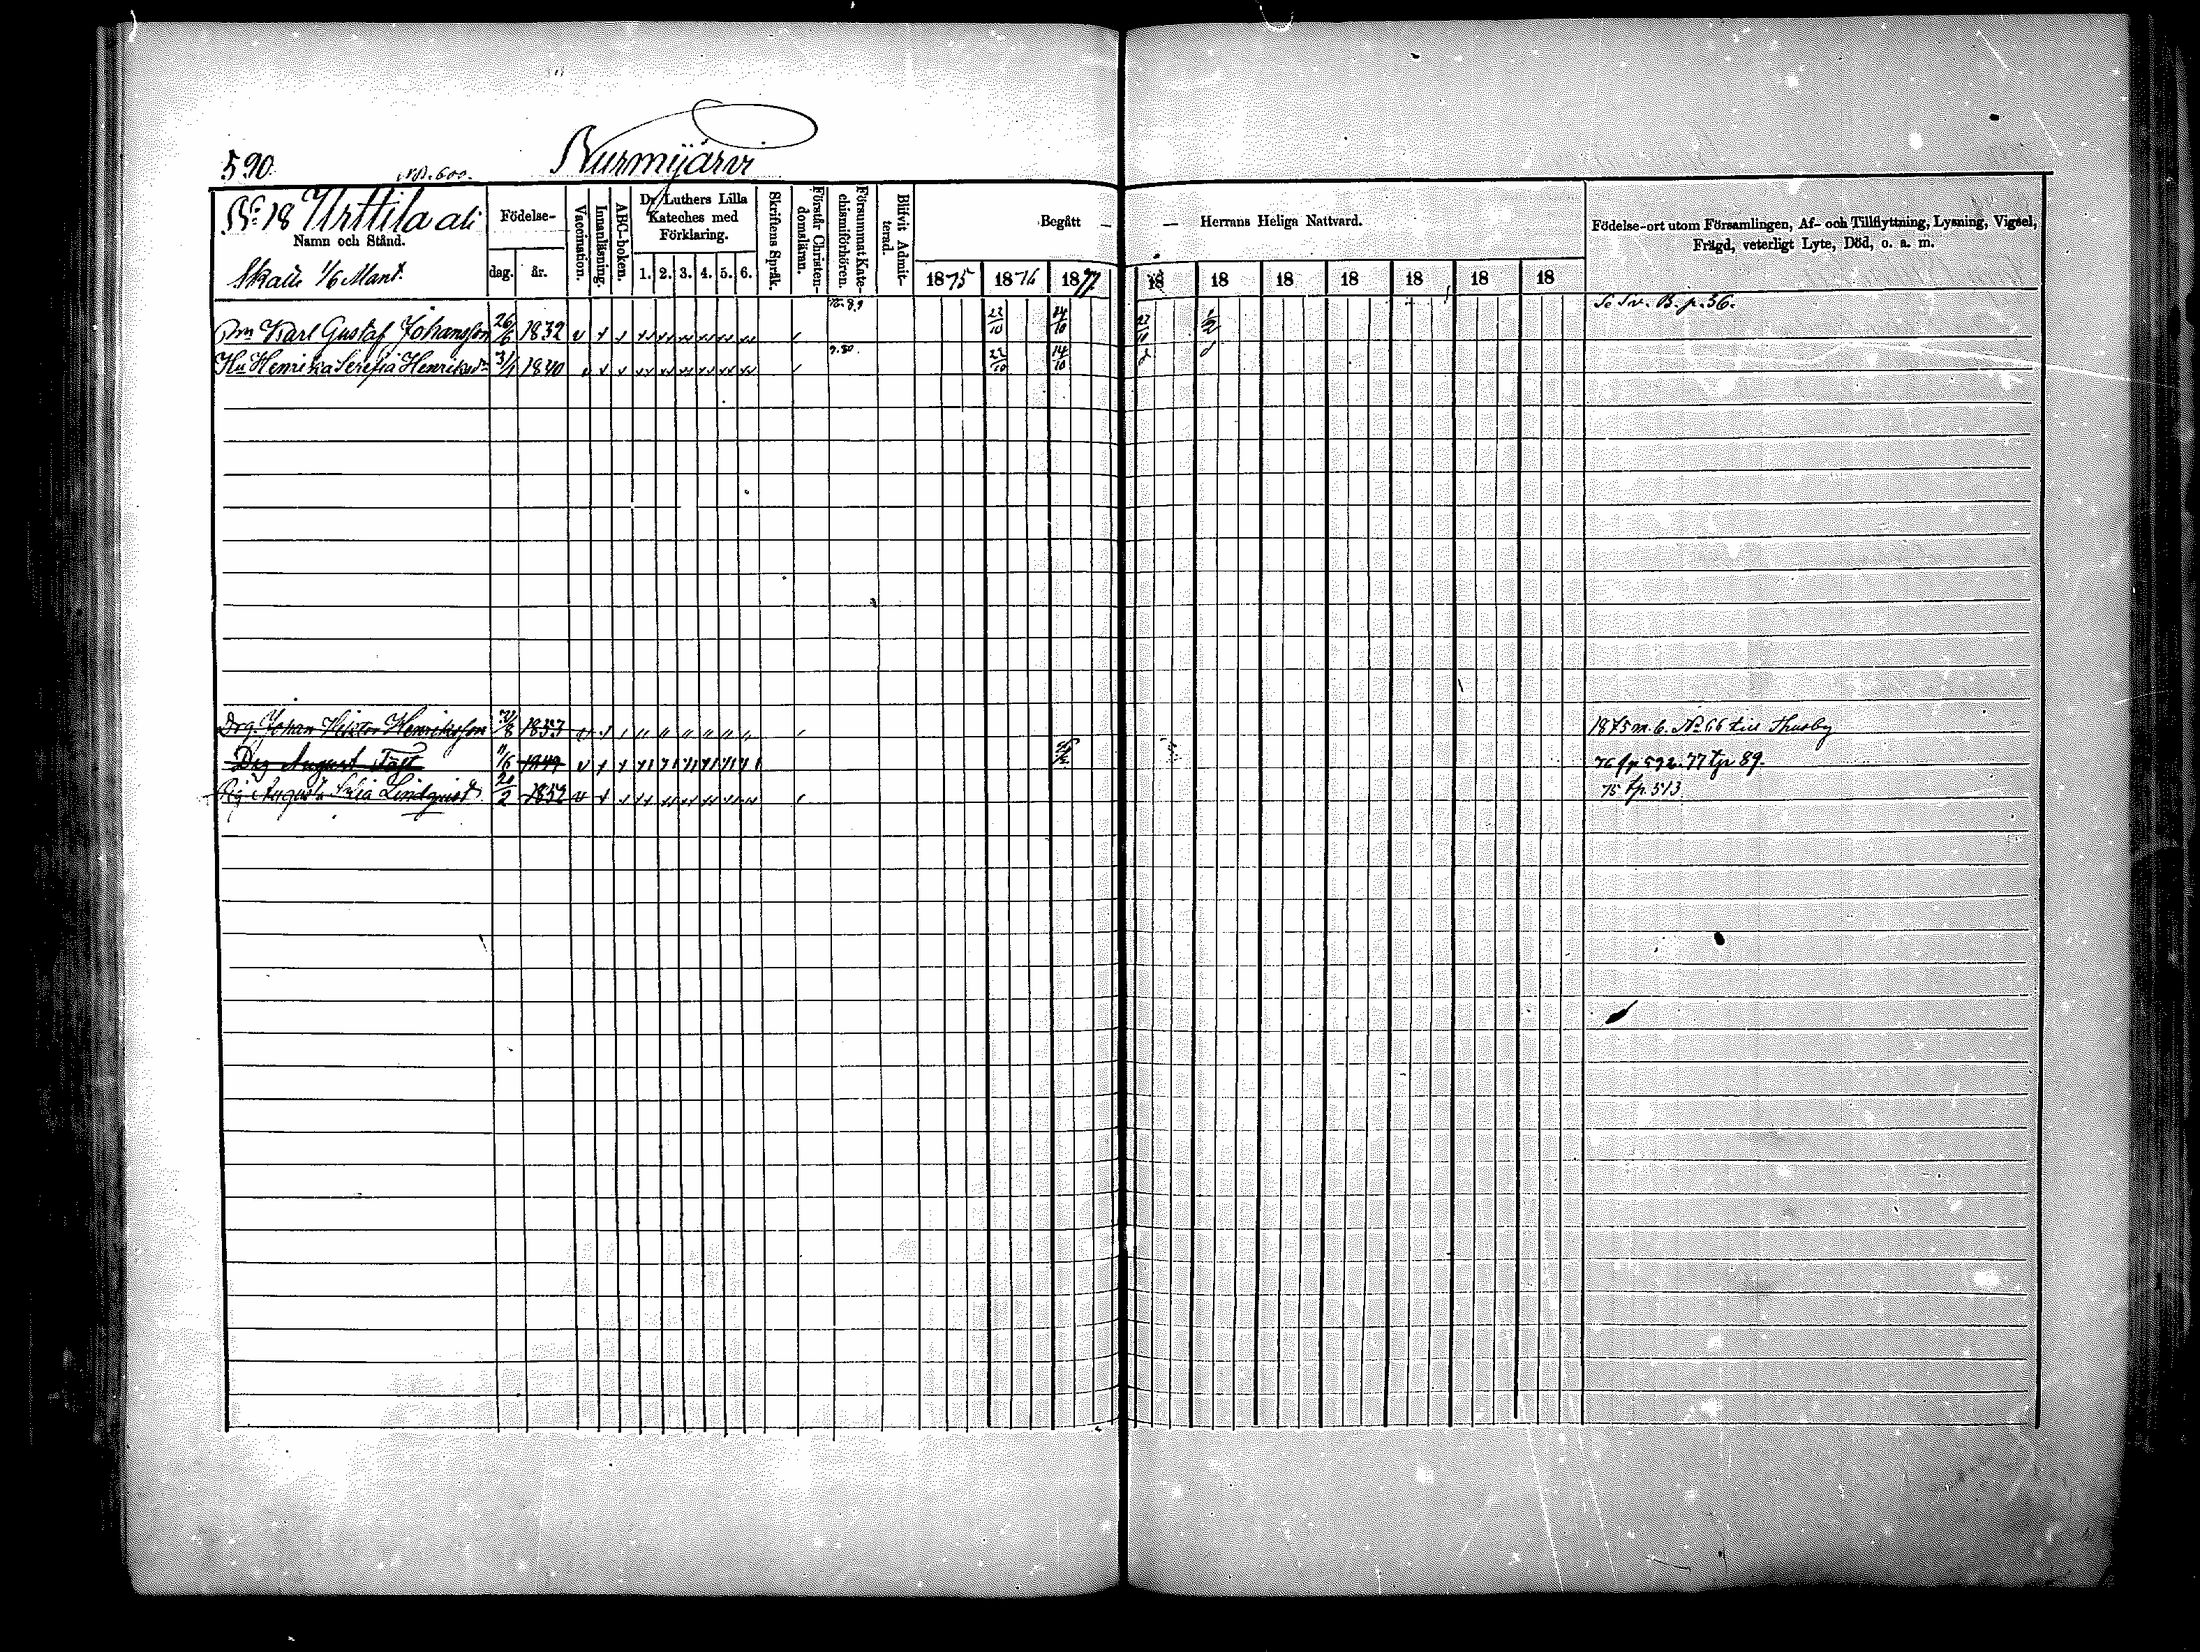 590.
Nurmijärvi
No 18 Urttila ali
Namn och Stånd.
Skatte 1/6 Mant.
Födelse-
dag. år.
Vaccination.
Innanläsning.
ABC-boken.
Dr Luthers Lilla
Kateches med
Förklaring.
1. 2. 3. 4. 5. 6.
Skriftens Språk.
Förstår Christen-
domsläran.
Försummat Kate-
chismiförhören.
Blifvit Admit-
terad.
Begått — — Herrans Heliga Nattvard.
1875 1876 1877 18 18 18 18 18 18 18
Födelse-ort utom Församlingen, Af- och Tillflyttning, Lysning, Vigsel,
Frägd, veterligt Lyte, Död, o. a. m.
Karl Gustaf Johansson 26/6 1832 22/10 14/10 1/2
B. p. 56.
Hu Henrika Serefia Henriksdr 3/1 1840 9.80. 22/10 14/10
Drg. Johan Viktor Henriksson 1853 1875 m. b. No 66 till Thusby
Drg August Fast 11/6 1849 76 fp 592. 77 tp 89.
Pig. Augusta Lindqvist 20/2 1852 75 tp. 513